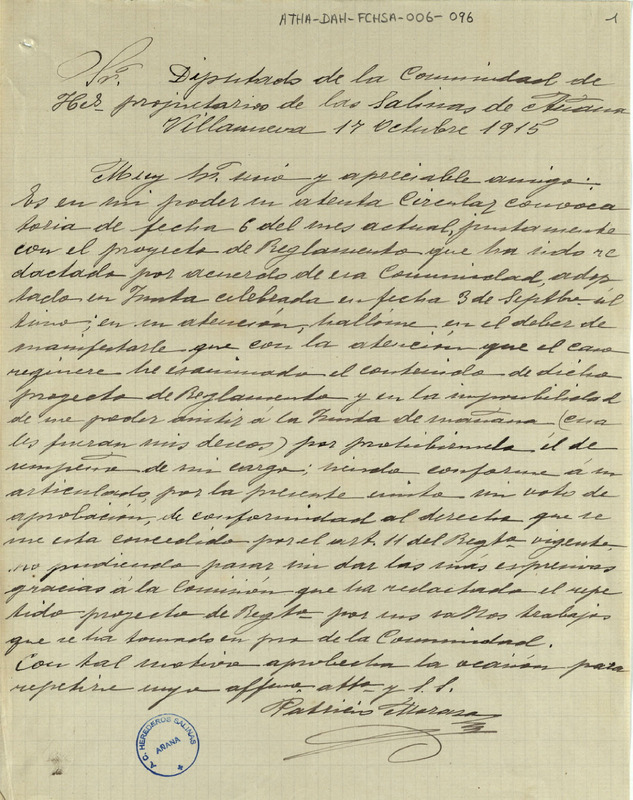 ATHA-DAH-FCHSA-006-096
1
Sr. Diputado de la Comunidad de
Her.s propietarios de las Salinas de Añana
Villanueva 17 Octubre 1915
Muy Sr. mio y apreciable amigo:
Es en mi poder su atenta Circular convoca
toria de fecha 6 del mes actual, juntamente
con el proyecto de Reglamento que ha sido re
dactado por acuerdo de esa Comunidad, adop
tado en Junta celebrada en fecha 3 de Septbre. ul
timo; en su atención, hallome en el deber de
manifestarle que con la atencion que el caso
requiere he examinado el contenido de dicho
proyecto de Reglamento y en la imposibilidad
de me poder asistir á la Junta de mañana (cua
les fueran mis deseos) por prohibirmelo el de
sempeño de mi cargo; siendo conforme a su
articulado, por la presente emito mi voto de
aprobación, de conformidad al derecho que se
me esta concedido por el art. 11 del Regto vigente
no pudiendo pasar sin dar las más expresivas
gracias á la Comisión que ha redactado el repe
tido proyecto de Regto por sus trabajos
que se ha tomado en pro de la Comunidad.
Con tal motivo aprobecha la ocasión para
repetirse suyo affmo atto y S. S.
Patricio
A.C. HEREDEROS SALINAS
AÑANA